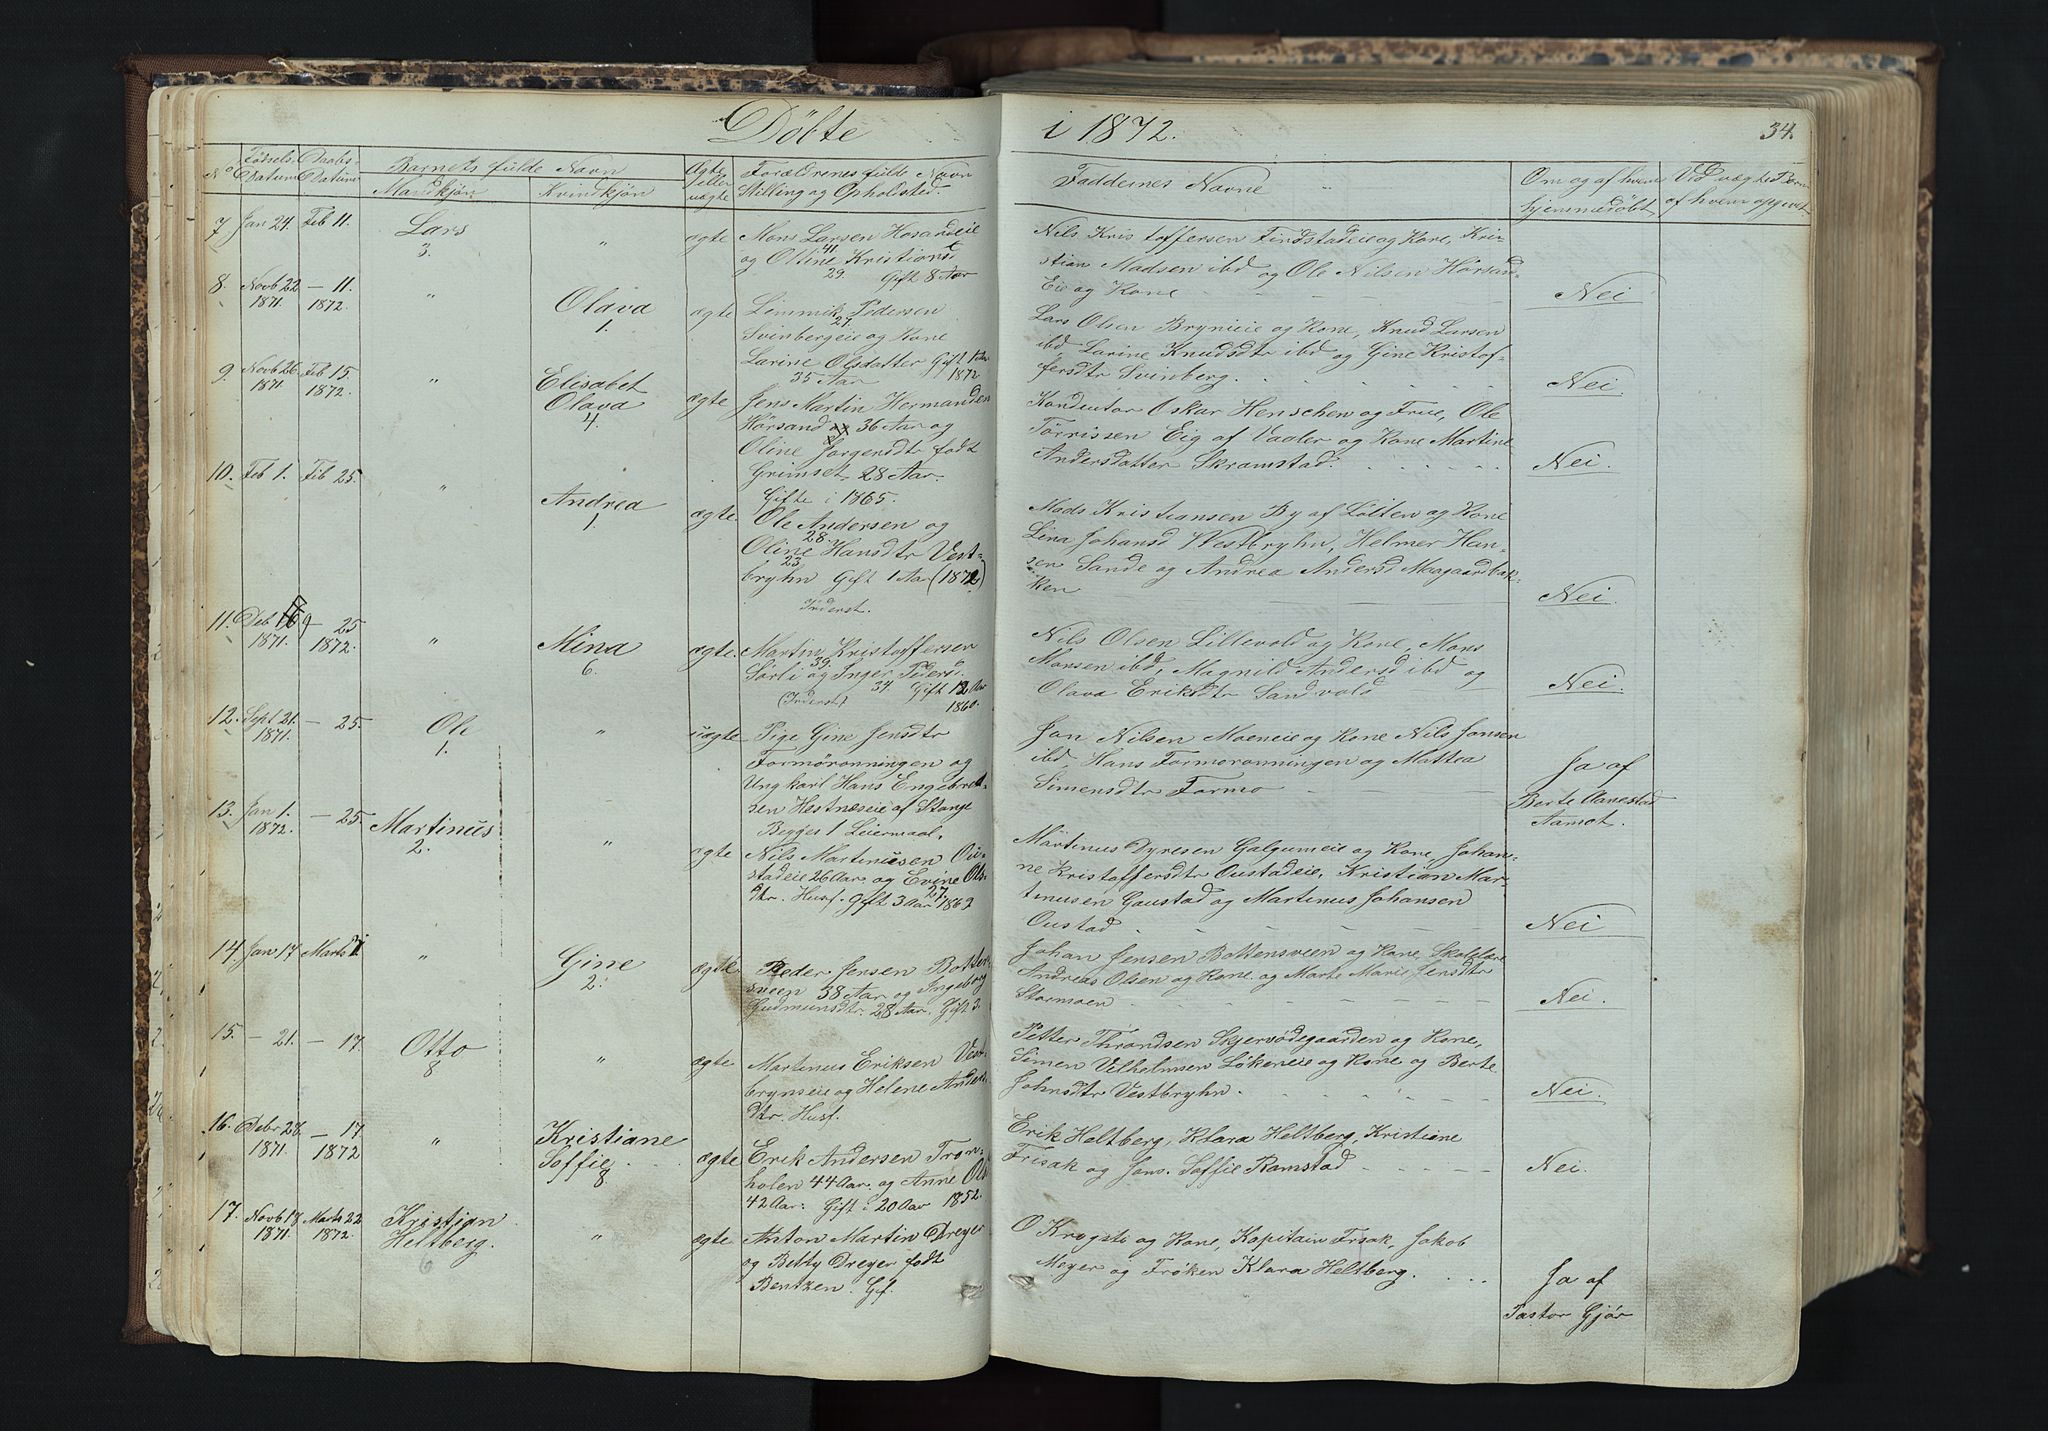 Døbte i 1872.
34.
No Fødsels Datum Daabs-Datum Barnets fulde Navn Mandkjøn. Kvindkjøn Ægte eller uægte Forældrenes fulde Navn Stilling og Opholsted.
Faddernes Navne Om og af hvem hjemmedøbt Ved uægte Børn af hvem opgivet
7. Jan 24. Feb 11. Lars 3. " ægte
Mons Larsen Hosandeie
og Oline 41. Kristiansd
29. Gift 8 Aar
Nils Kristoffersen Findstadeie og Kone, Kri-
stian Madsen ibd og Ole Nilsen Hørsand
Eie og Kone
Nei
8. Novb 22 1871. — 11. 1872. " Olava 1. ægte
Lemmik Pedersen
27.
Svinbergeie og Kone
Larine Olsdatter Gift 1 Aar
35 Aar 1872
Lars Olsen Brynieie og Kone, Knud Larsen
ibd, Larine Knudsdtr ibd og Gine Kristof-
fersdtr Svinberg.
Nei
9. Novb 26. 1871 Feb 15. 1872. " Elisabet Olava 4. ægte
Jens Martin Hermansen
Hørsand 36 Aar og
Oline Jørgensdtr født
Grimset. 28 Aar.
Gifte i 1865.
Konductør Oskar Henschen og Frue, Ole
Tørrissen Eig af Vaaler og Kone Martine
Andersdatter Skramstad.
Nei.
10. Feb 1. Feb 25. " Andrea 1 ægte.
Ole Andersen og
28.
Oline Hansdtr Vest-
23
bryhn Gift 1 Aar (1872)
Inderst.
Mads Kristiansen By af Løiten og Kone
Lina Johansd Vestbryhn, Helmer Han-
sen Sande og Andrea Andersd Maagaardbak-
ken
Nei.
11. Deb 1871. — 25 1872. " Mina 6. ægte.
Martin Kristoffersen
Sørli 39. og Inger Peders.
(Inderst) 34. Gift 12 Aar
1860.
Nils Olsen Lillevold og Kone, Mons
Monsen ibd, Magnild Andersd ibd og
Olava Eriksdtr Sandvold
Nei.
12. Sept 21. 1871. — 25. Ole 1. " uægte
Pige Gine Jensdtr
Formoronningen og
Ungkarl Hans Engebret-
sen Hestnæseie af Stange
Begges 1 Leiermaal.
Jon Nilsen Moeneie og Kone Nils Jonsen
ibd, Hans Formoronningen og Mattea
Simensdtr Formo
Ja af
Berte Aanestad
Aamot.
13. Jan 1. 1872. — 25. Martinus 2. " ægte
Nils Martinusen Ou-
stadeie 26 Aar. og Evine Ols-
27.
dtr. Husf. Gift 3 Aar 1869
Martinus Dyresen Galgumeie og Kone, Johan-
ne Kristoffersdtr Oustadeie, Kristian Mar-
tinusen Gaustad og Martinus Johansen
Oustad
Nei
14. Jan 17 Marts " Gine 2. ægte
Peder Jensen Botten-
sveen 38 Aar og Ingeborg
Gudmunsdtr. 28 Aar. Gift 3.
Johan Jensen Bottensveen og Kone, Skolelære
Andreas Olsen og Kone og Marte Marie Jensdtr
Stormoen
Nei.
15. — 21. — 17. Otto 8 " ægte
Martinus Eriksen Vest-
brynseie og Helene Anders-
dtr. Husf.
Petter Throndsen Skjervødegaarden og Kone,
Simen Vilhelmsen Løkeneie og Kone og Berte
Johnsdtr Vestbryhn.
Nei.
16. Debr 28 1871. — 17. 1872 " Kristiane Soffie. 8 ægte
Erik Andersen Tron-
holen 44 Aar. og Anne Ols
42 Aar. Gift i 20 Aar 1852.
Erik Heltberg, Klara Heltberg, Kristiane
Frisak og Jons. Soffie Ramstad
Nei.
17. Novb 18 1871. Marts 22 1872. Kristian Heltberg. 6 " ægte
Anton Martin Dreyer
og Betty Dreyer født
Bentzen. Gf.
O Krogsti og Kone, Kapitain Frisak, Jakob
Meyer og Frøken Klara Heltberg.
Ja af
Pastor Gjør